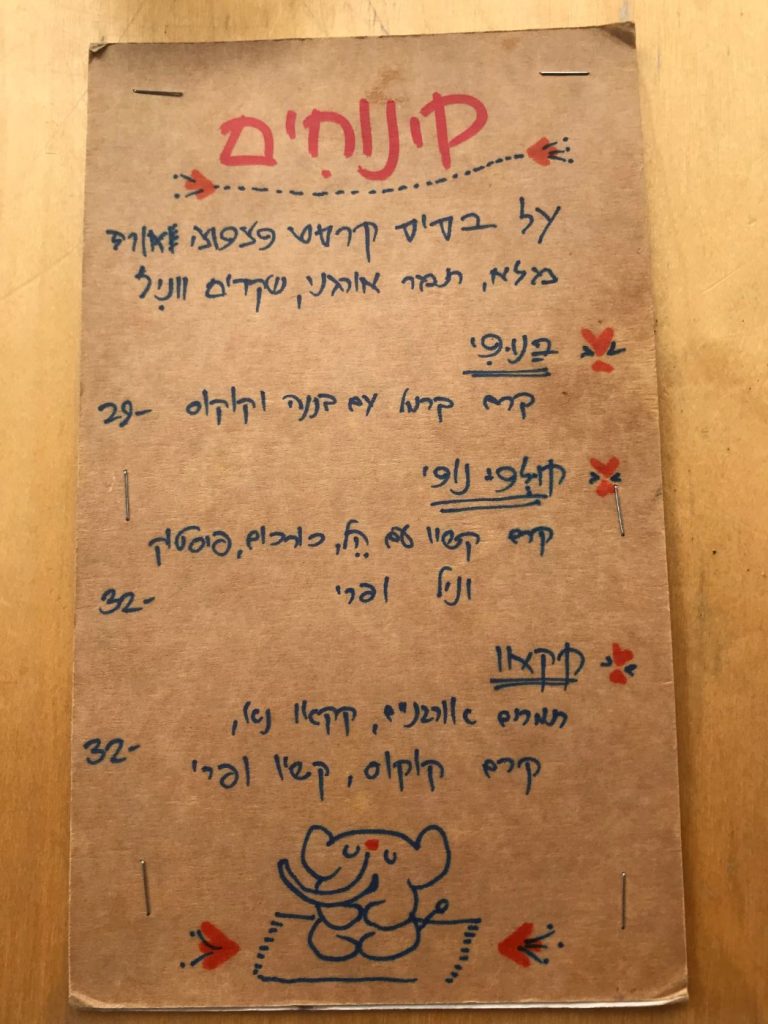 קינוחים
על בסיס קראסט פצפוצי אורז
מלא, תמר אורגני, שקדים ווניל
בָּנוֹפִי
קרם קרמל עם בננה וקוקוס 29-
קולפי נופי
קרם קשיו עם הֶל, כורכום, פיסטוק
וניל ופרי 32-
קקאו
תמרים אורגניים, קקאו נא,
קרם קוקוס, קשיו ופרי 32-